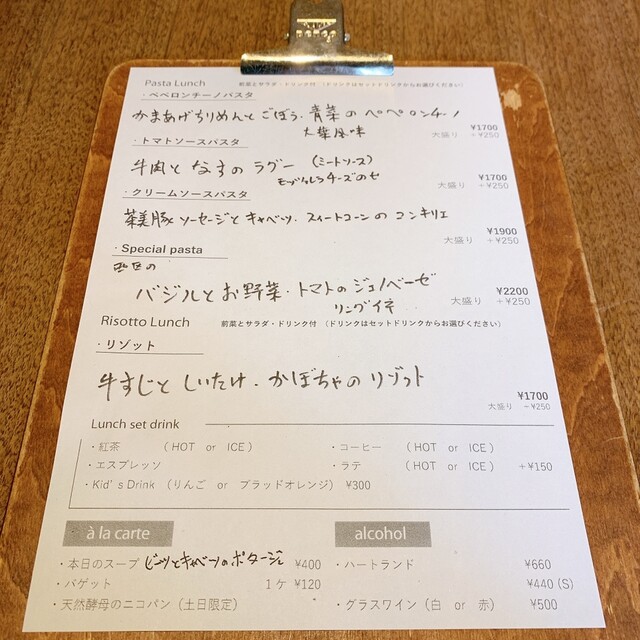 Pasta Lunch 前菜とサラダ・ドリンク付 （ドリンクはセットドリンクからお選びください）
・ペペロンチーノパスタ
かまあげちりめんと ごぼう・青菜の ペペロンチーノ
大葉風味
¥1700
大盛り +¥250
・トマトソースパスタ
牛肉と なすの ラグー （ミートソース）
モッツァレラチーズのせ
¥1700
大盛り +¥250
・クリームソースパスタ
茶美豚 ソーセージと キャベツ・スイートコーンの コンキリエ
¥1900
大盛り +¥250
・Special pasta
バジルと お野菜・トマトの ジェノベーゼ
リングイネ
¥2200
大盛り +¥250
Risotto Lunch 前菜とサラダ・ドリンク付 （ドリンクはセットドリンクからお選びください）
・リゾット
牛すじと しいたけ・かぼちゃの リゾット
¥1700
大盛り +¥250
Lunch set drink
・紅茶 （ HOT or ICE ） ・コーヒー （ HOT or ICE ）
・エスプレッソ ・ラテ （ HOT or ICE ） +¥150
・Kid's Drink （りんご or ブラッドオレンジ） ¥300
à la carte alcohol
・本日のスープ ビーツとキャベツのポタージュ ¥400 ・ハートランド ¥660
・バゲット 1ケ ¥120 ¥440 (S)
・天然酵母のニコパン（土日限定） ・グラスワイン（白 or 赤） ¥500